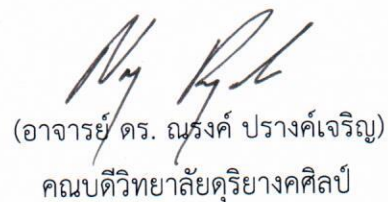 (อาจารย์ ดร. ณรงค์ ปรางค์เจริญ)
คณบดีวิทยาลัยดุริยางคศิลป์